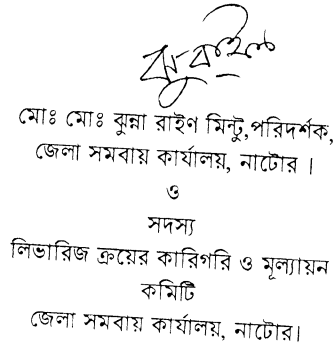 মোঃ মোঃ ঝুন্না রাইণ মিন্টু,পরিদর্শক,
জেলা সমবায় কার্যালয়, নাটোর ।
ও
সদস্য
লিভারিজ ক্রয়ের কারিগরি ও মূল্যায়ন
কমিটি
জেলা সমবায় কার্যালয়, নাটোর।